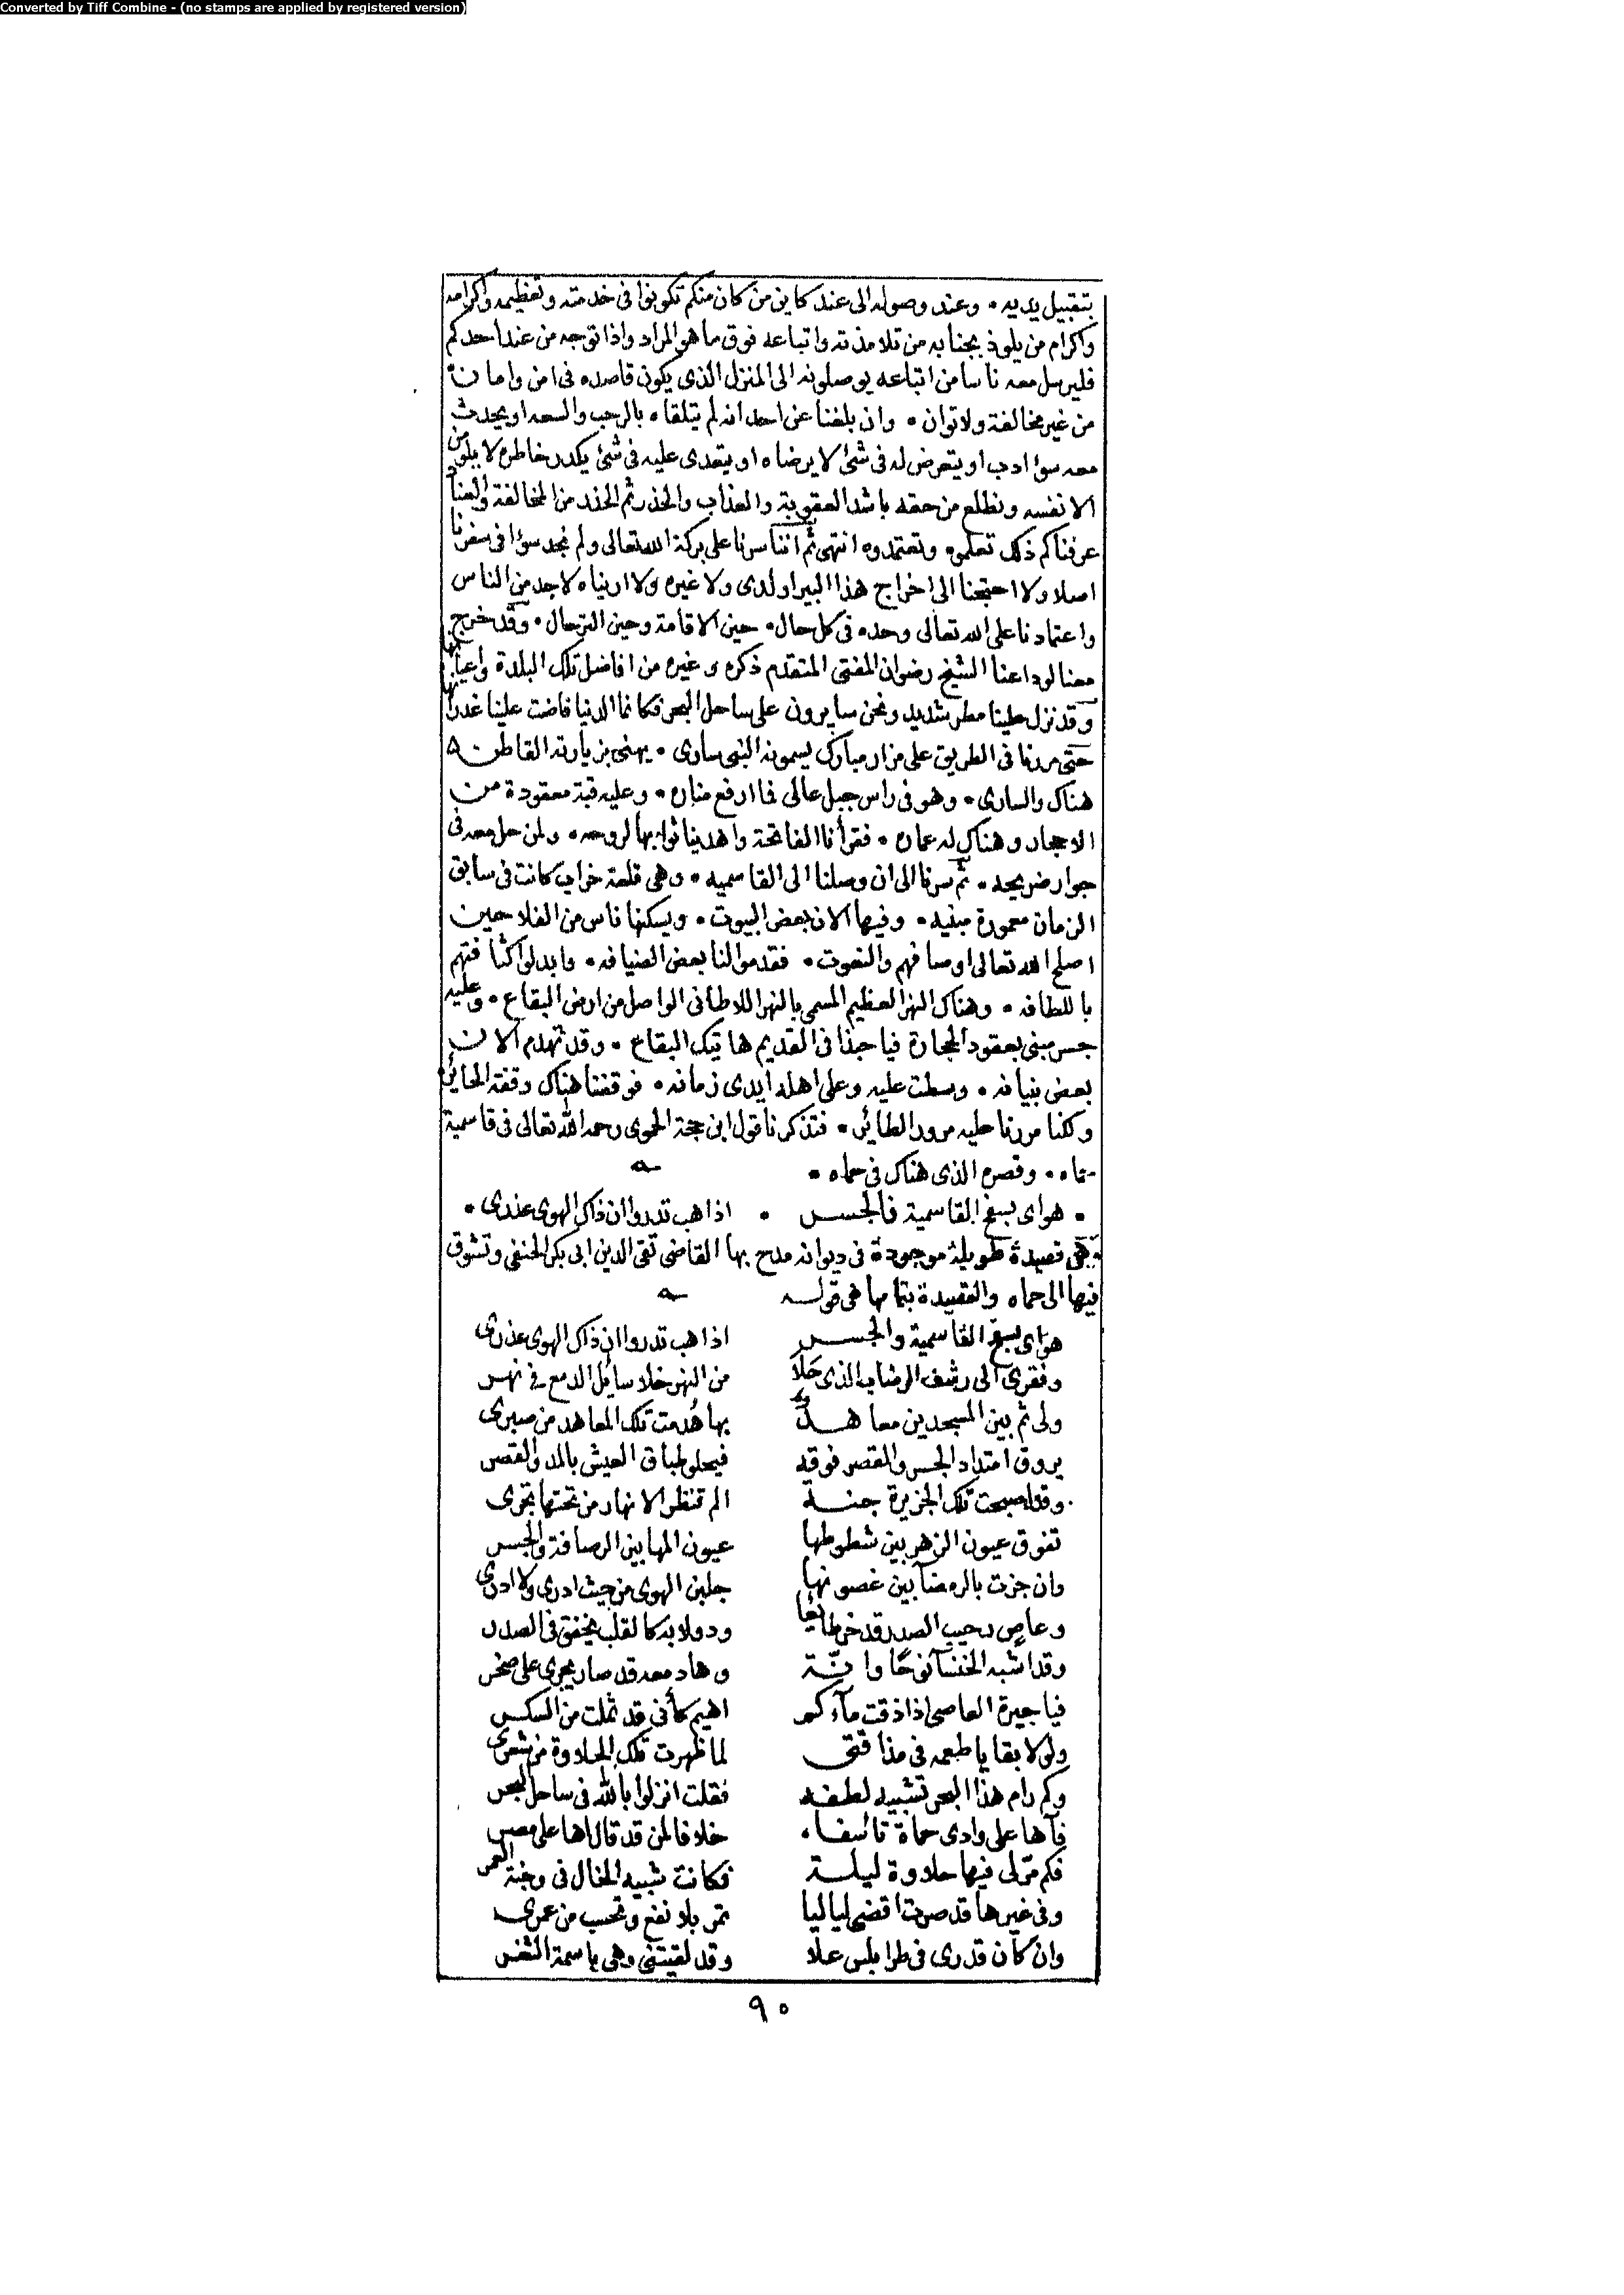 Converted by Tiff Combine - (no stamps are applied by registered version)
بتقبيل يديه • وعند وصوله الى عند كاين من كان منكم تكونوا في خدمته وتعظيمه واكرامه
واكرام من يلوذ بجنابه من تلامذته واتباعه فوق ما هو المراد واذا توجه من عند احدكم
فليرسل معه ناسا من اتباعه يوصلونه الى المنزل الذي يكون قاصده في امن وامان
من غير مخالفة ولا توان • وان بلغنا عن احد انه لم يتلقاه بالرحب والسعه او يحدث
معه سؤ ادب او يتعرض له في شئ لا يرضاه او يتعدى عليه في شئ يكدر خاطره لا يلومن
الا نفسه ونطلع من حقه باشد العقوبة والعذاب والحذر ثم الحذر من المخالفة والعناد
عرفناكم ذلك تعلموه وتعتمدوه انتهى ثم اننا سرنا على بركة الله تعالى ولم نجد سؤا في سفرنا
اصلا ولا احتجنا الى اخراج هذا البيراولدى ولا غيره ولا اريناه لاحد من الناس
واعتمادنا على الله تعالى وحده في كل حال • حين الاقامة وحين الترحال • وقد خرج
معنا لوداعنا الشيخ رضوان المفتى المتقدم ذكره وغيره من افاضل تلك البلدة واعيانها
وقد نزل علينا مطر شديد ونحن سايرون على ساحل البحر فكانما الدنيا فاضت علينا غدرانها
حتى مررنا في الطريق على مزار مبارك يسمونه النبى سارى • يهنى بزيارته القاطن
هناك والسارى • وهو في راس جبل عالى فما ارفع مناره • وعليه قبة معقودة من
الاحجار وهناك له عماره • فقرأنا الفاتحة واهدينا ثوابها لروحه • ولمن حل معه في
جوار ضريحه • ثم سرنا الى ان وصلنا الى القاسميه • وهى قلعة خراب كانت في سابق
الزمان معمورة مبنيه • وفيها الان بعض البيوت • ويسكنها ناس من الفلاحين
اصلح الله تعالى اوصافهم والنعوت • فقدموا لنا بعض الضيافه • وابدلوا كثافتهم
باللطافه • وهناك النهر العظيم المسمى بالنهر اللاطانى الواصل من ارض البقاع • وعليه
جسر مبنى بعقود الحجارة فيا حبذا في القديم هاتيك البقاع • وقد تهدم الان
بعض بنيانه • وسطت عليه وعلى اهله ايدى زمانه • فوقفنا هناك وقفة الحائر
ولكنا مررنا عليه مرور الطائر • فتذكرنا قول ابن حجة الحموى رحمه الله تعالى في قاسمية
حماه • وقصره الذى هناك في حماه •
• هواى بسفح القاسمية فالجسر • اذا هب تدروا ان ذاك الهوى عذرى •
وهى قصيدة طويلة موجودة في ديوانه مدح بها القاضى تقى الدين ابى بكر الحنفى وتشوق
فيها الى حماه والقصيدة بتمامها هى قوله
هواى بسفح القاسمية والجسر اذا هب تدروا ان ذاك الهوى عذرى
وفقرى الى رشف الرضاب الذى حلا من النهر خلا سائل الدمع في نهر
ولى ثم بين المسجدين معاهد بها هُدمت تلك المعاهد من صبرى
يروق امتداد الجسر والقصر فوقه فيحلو طباق العيش بالمد والقصر
وقد اصبحت تلك الجزيرة جنة الم تنظر الانهار من تحتها تجرى
تفوق عيون الزهر بين شطوطها عيون المها بين الرصافة والجسر
وان جزت بالرمضا بين غصونها جلبن الهوى من حيث ادرى ولا ادرى
وعاصٍ رحيب الصدر قد خر طائعا ودولابه كالقلب يخفق في الصدر
وقد اشبه الخنسآ نوحا وانّة وهاد معه قد صار يجرى على صخر
فيا جيرة العاصى اذا ذقت مآءكم اهيم كأنى قد ثملت من السكر
ولولا بقايا طعمه في مذاقتى لما ظهرت تلك الحلاوة من شعرى
وكم رام هذا البحر تشبيه لطفه فقلت انزلوا بالله في ساحل البحر
فآها على وادى حماة تاسفا خلافا لمن قد قال اها على مصر
فكم مر لى فيها حلاوة ليلة فكانت شبيه الخال في وجنة العمر
وفي غيرها قد صرت اقضى لياليا تمر بلا نفع وتحسب من عمرى
وان كان قدرى في طرابلس علا وقد لقيتنى وهى باسمة الثغر
٩٠